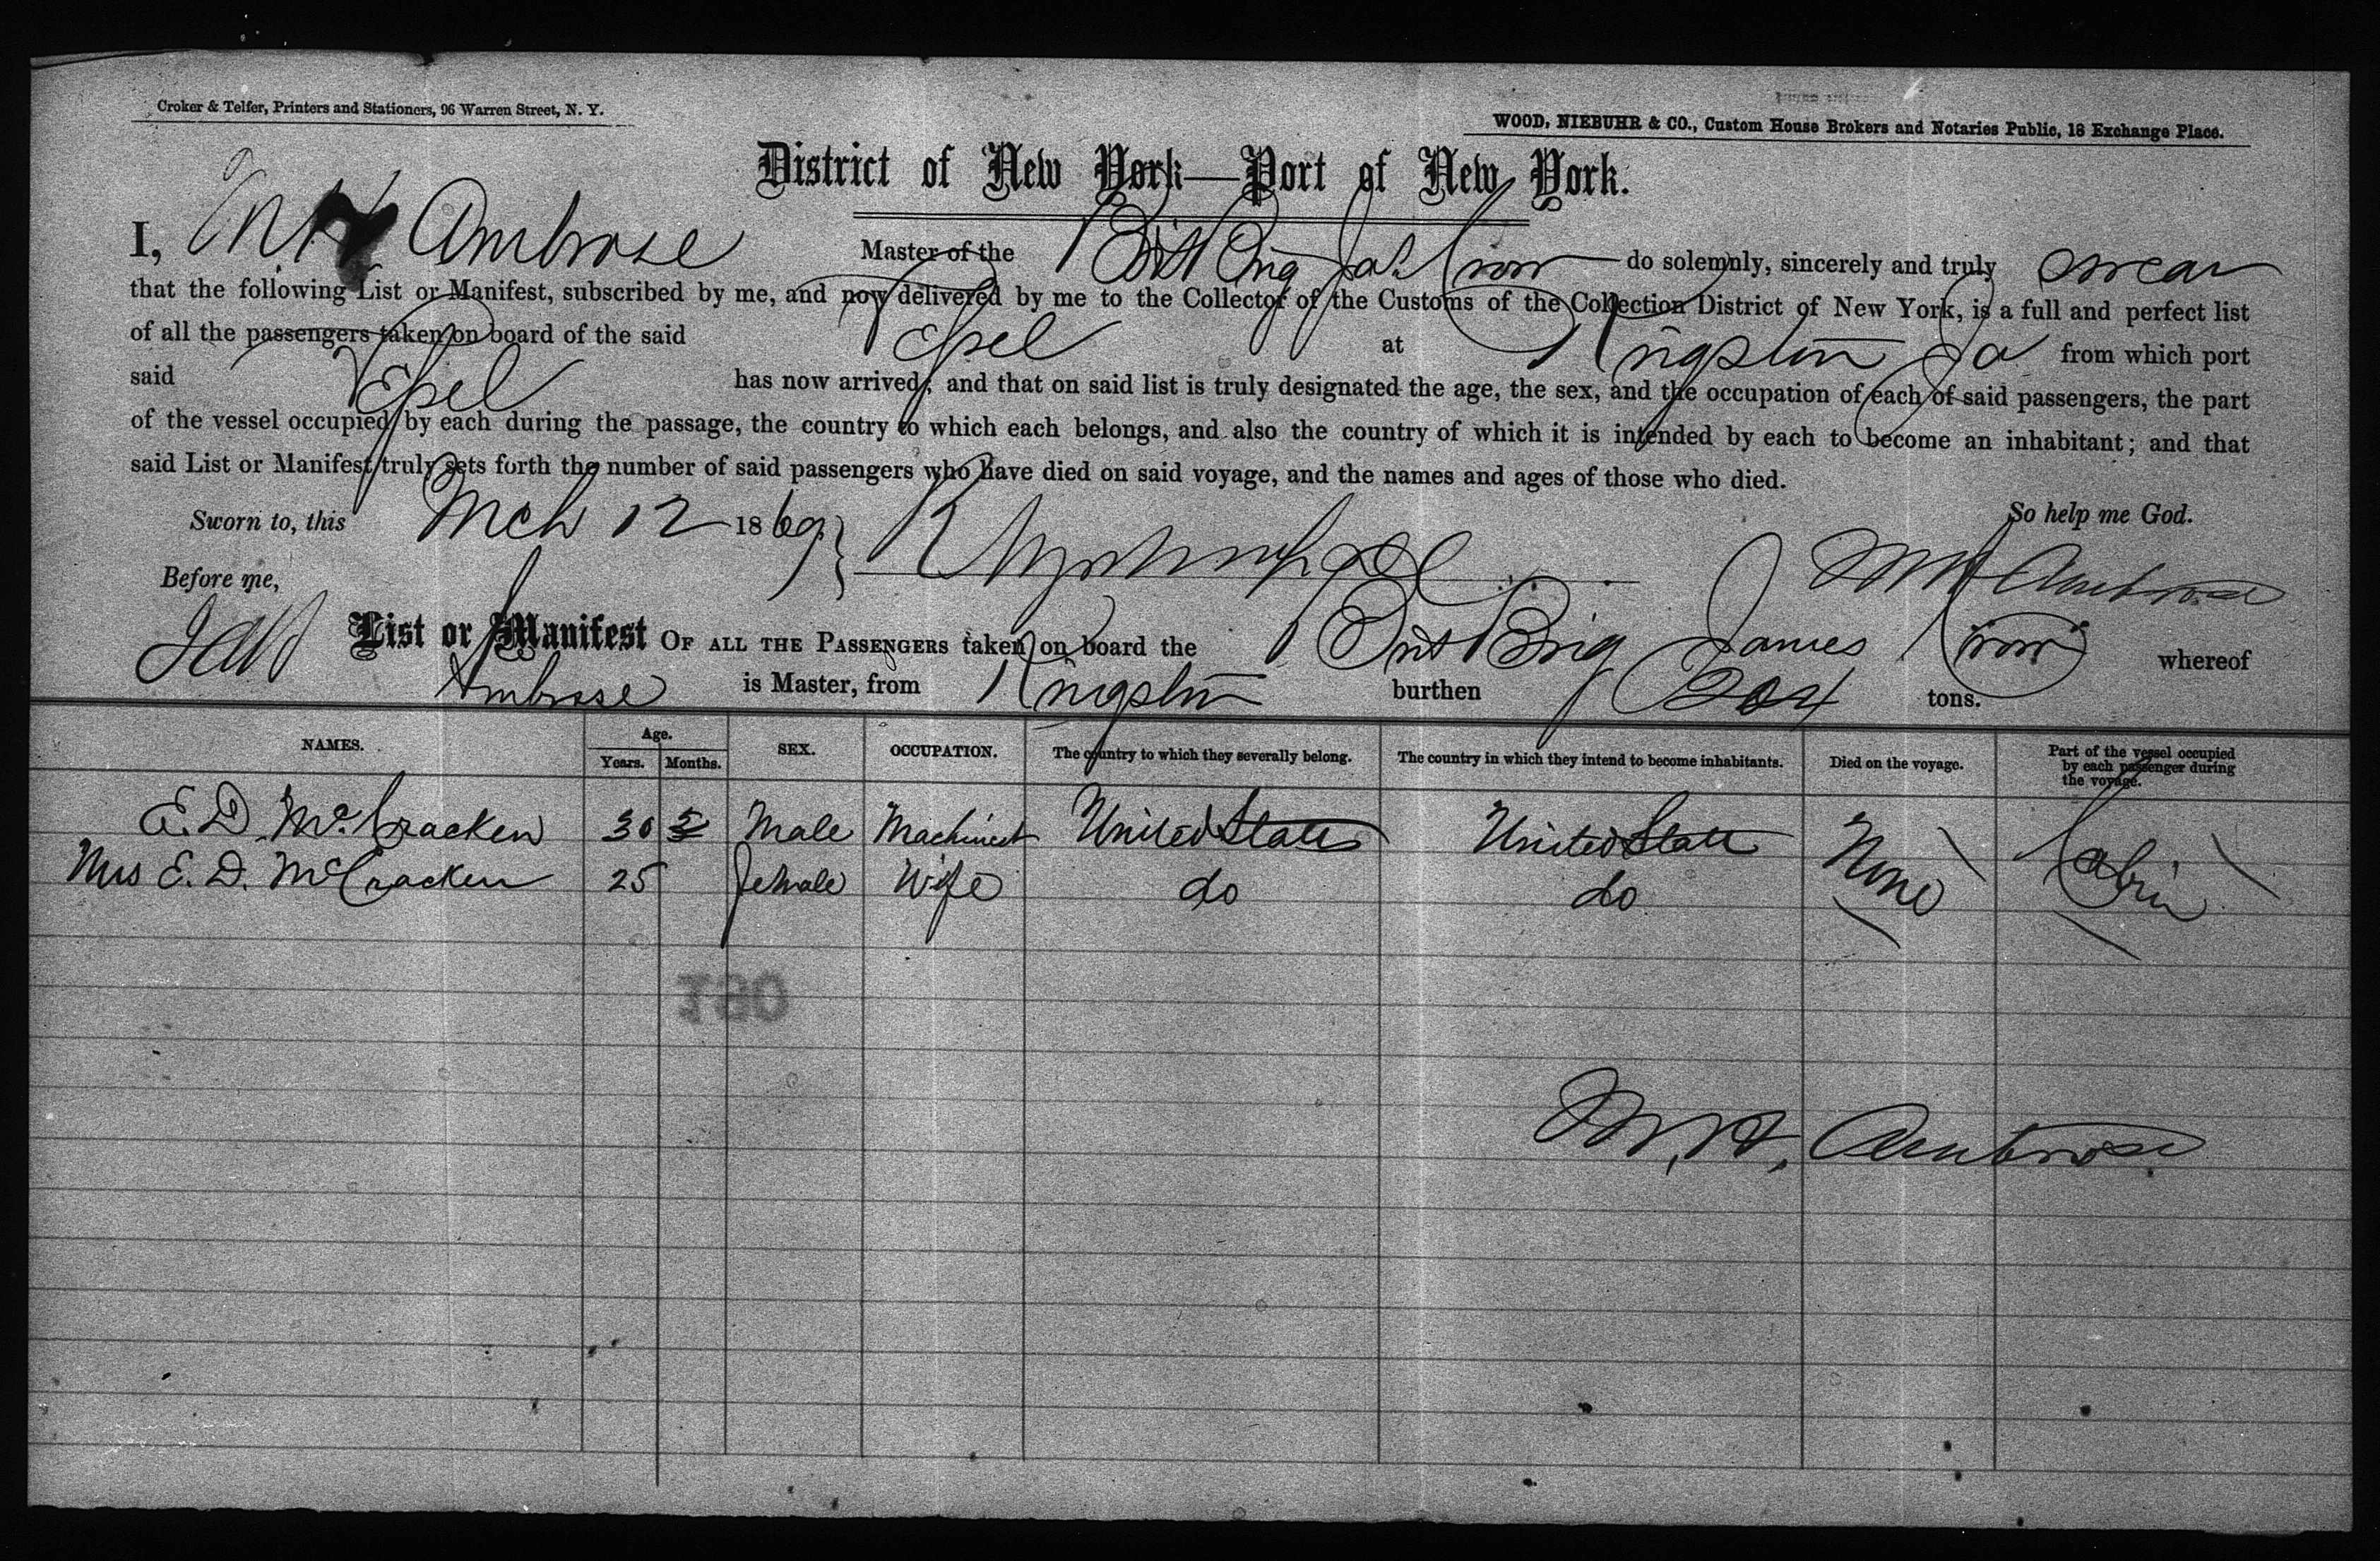 Croker & Telfer, Printers and Stationers, 96 Warren Street, N. Y.
WOOD, NIEBUHR & CO., Custom House Brokers and Notaries Public, 18 Exchange Place.
District of New York—Port of New York.
I, Ambrose Master of the Brit Brig Jas. Crow do solemnly, sincerely and truly swear
that the following List or Manifest, subscribed by me, and now delivered by me to the Collector of the Customs of the Collection District of New York, is a full and perfect list
of all the passengers taken on board of the said at Kingston Ja from which port
said has now arrived; and that on said list is truly designated the age, the sex, and the occupation of each of said passengers, the part
of the vessel occupied by each during the passage, the country to which each belongs, and also the country of which it is intended by each to become an inhabitant; and that
said List or Manifest truly sets forth the number of said passengers who have died on said voyage, and the names and ages of those who died.
Sworn to, this Mch 12 1869 So help me God.
Before me, M H Ambrose
List or Manifest OF ALL THE PASSENGERS taken on board the Brit Brig James Crow whereof
Ambrose is Master, from Kingston burthen 204 tons.
NAMES. Age. Years. Months. SEX. OCCUPATION. The country to which they severally belong. The country in which they intend to become inhabitants. Died on the voyage. Part of the vessel occupied by each passenger during the voyage.
E. D. McCracken 30 Male Machinest United States United States None Cabin
Mrs E. D. McCracken 25 female Wife do do
190
M. H. Ambrose